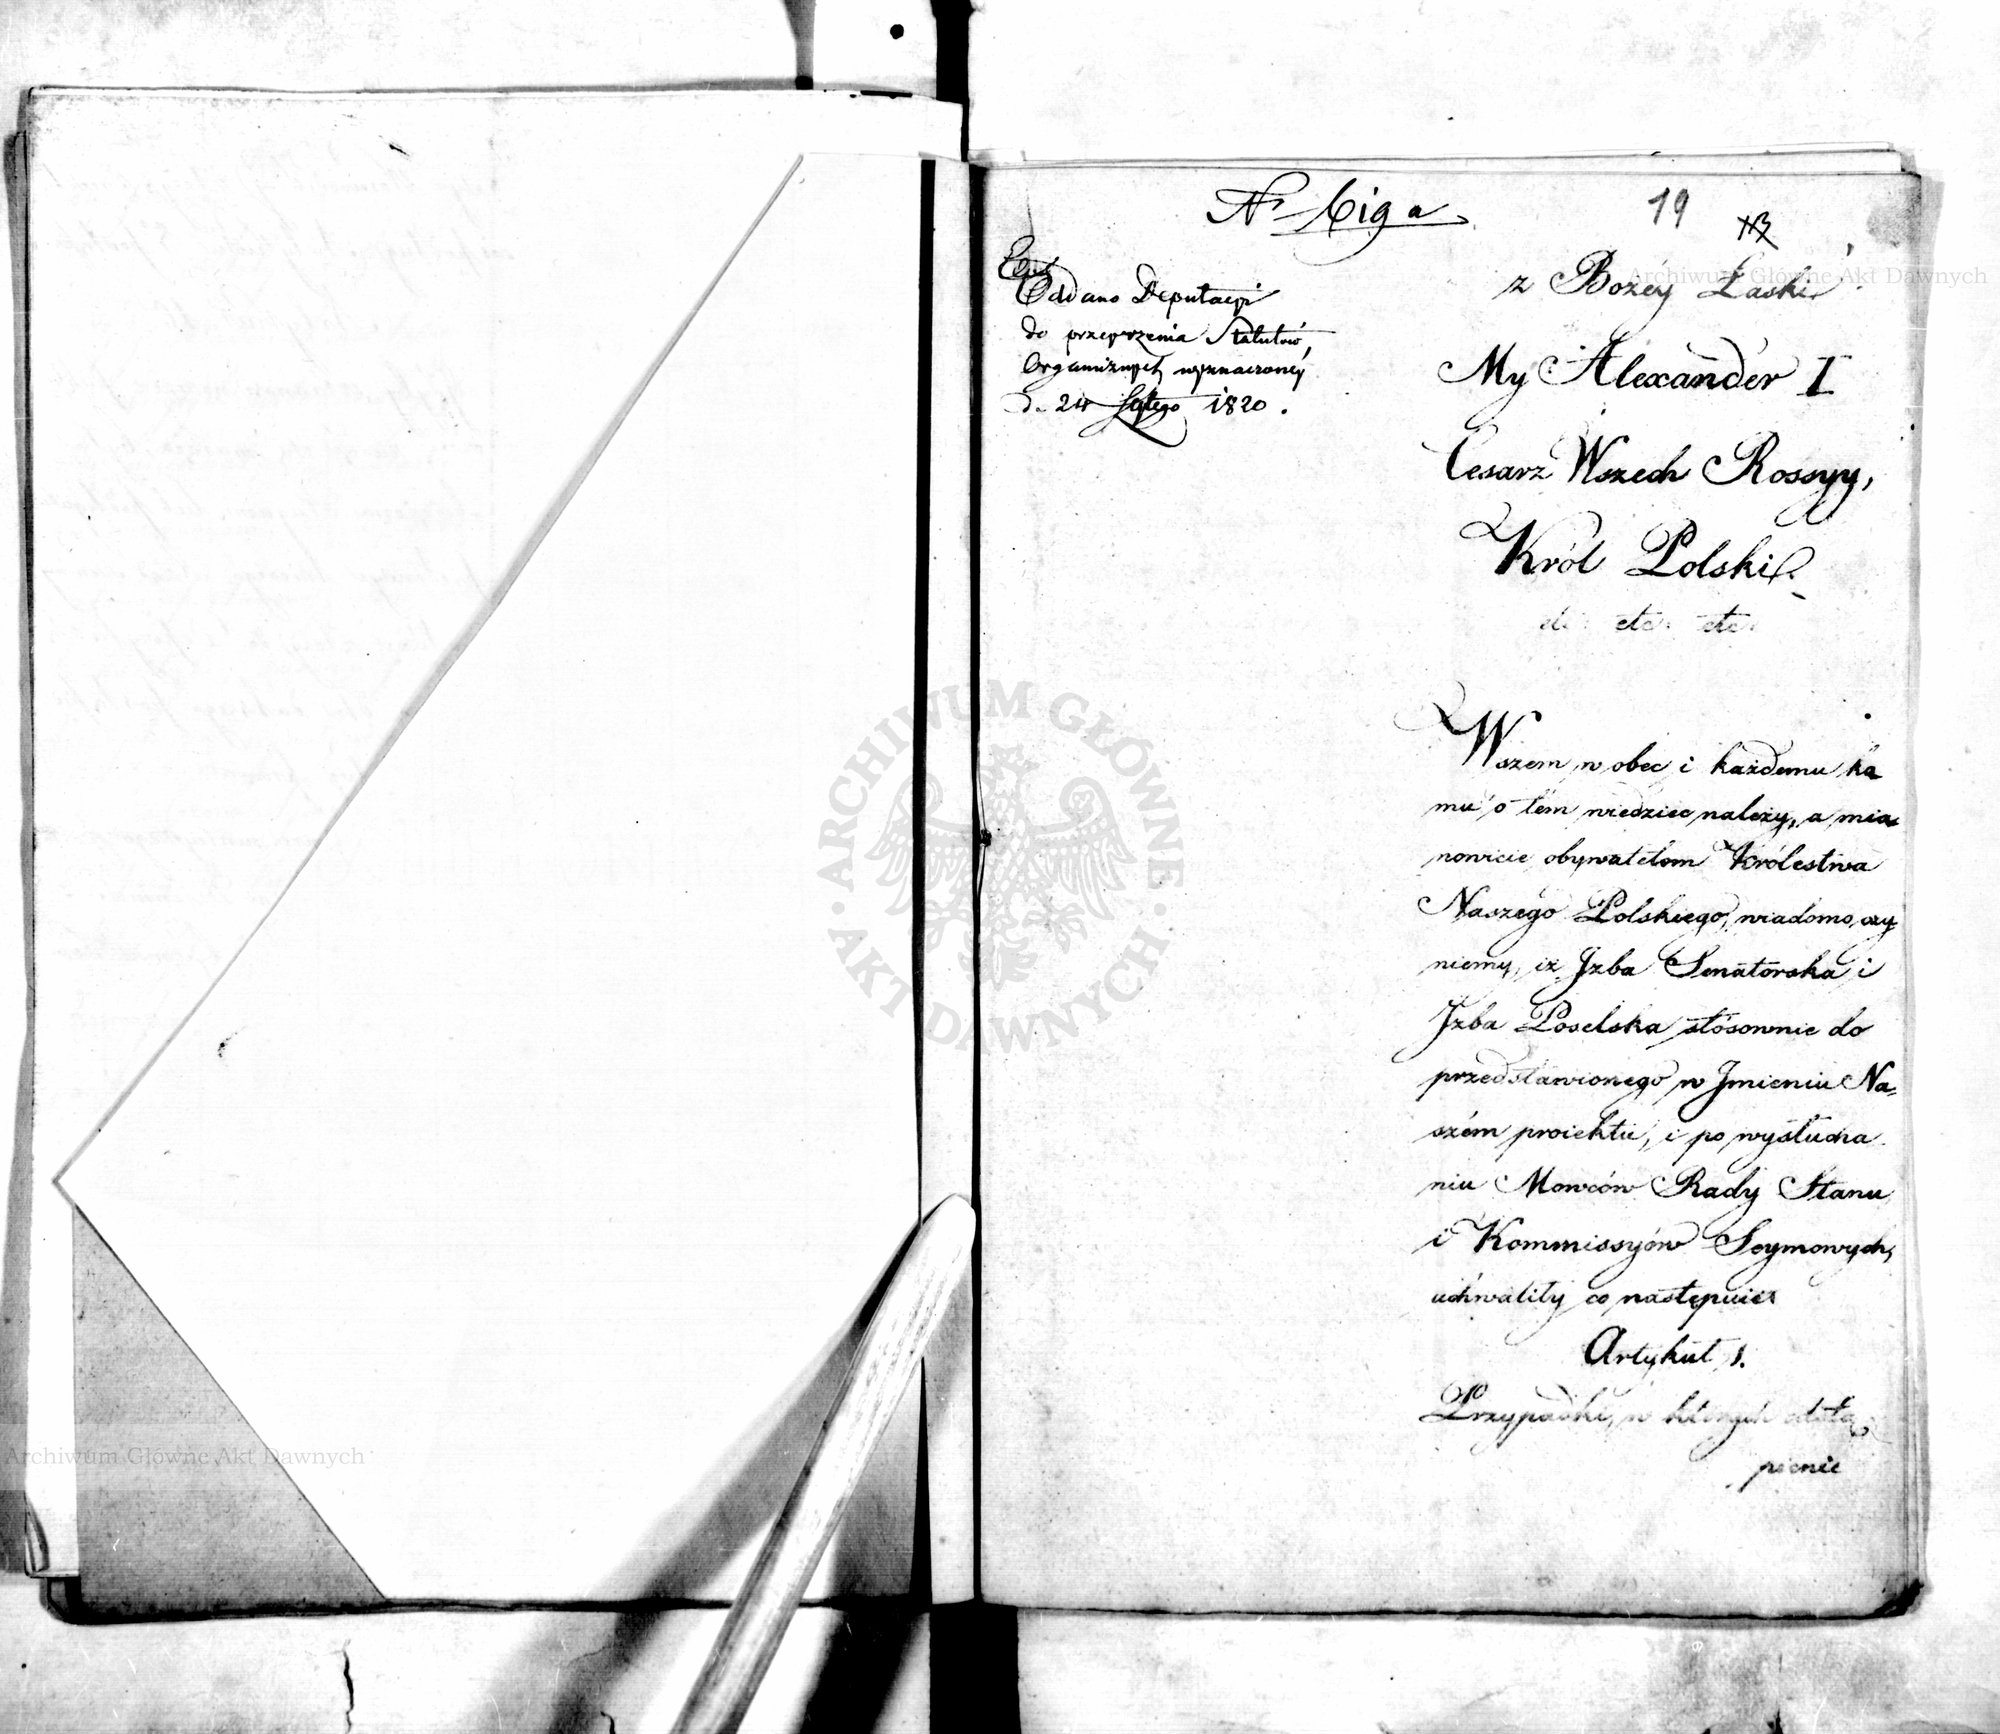 Nr 619 a
19
Oddano Deputacyi
do przeyrzenia Statutów
Organicznych wyznaczoney
d. 24 Lutego 1820.
z Bożey Łaski
My Alexander I
Cesarz Wszech Rossyy,
Król Polski
etc: etc: etc:
Wszem w obec i każdemu ko
mu o tem wiedzieć należy, a mia
nowicie obywatelom Królestwa
Naszego Polskiego, wiadomo czy
niemy, iż Izba Senatorska i
Izba Poselska stósownie do
przedstawionego w Imieniu Na-
szém proiektu, i po wysłucha
niu Mowców Rady Stanu
i Kommissyów Seymowych,
uchwaliły co następuie:
Artykuł 1.
Przypadki, w których odstą
pienie
Archiwum Główne Akt Dawnych
Archiwum Główne Akt Dawnych
ARCHIWUM GŁÓWNE AKT DAWNYCH